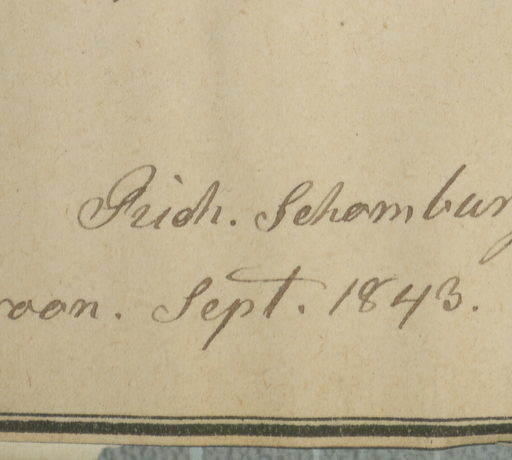 Rich. Schombur
roon. Sept. 1843.